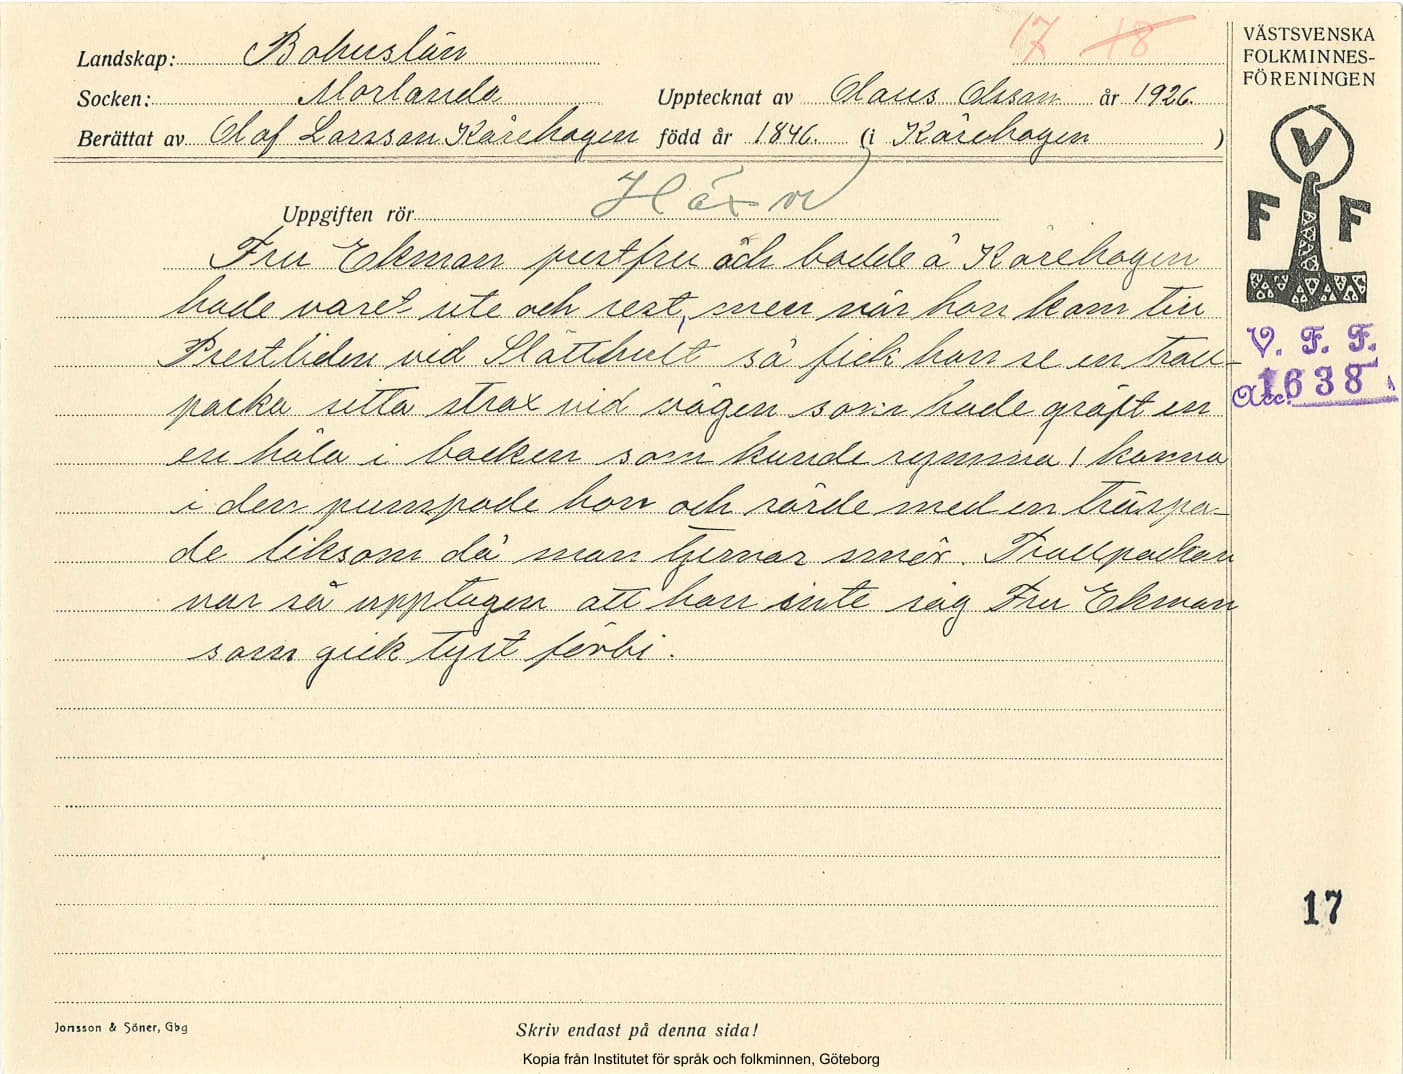 17 18
VÄSTSVENSKA
FOLKMINNES-
FÖRENINGEN
Landskap: Bohuslän
Socken: Morlanda Upptecknat av Claus Olsson år 1926.
Berättat av Olof Larsson Kårehogen född år 1846. (i Kårehogen )
V
F F
Uppgiften rör Häxor
Fru Ekman prestfru och bodde å Kårehogen
hade varet ute och rest, men när hon kom till
Prestliden vid Slätthult så fick hon se en troll-
packa sitta strax vid vägen som hade gräft en
en håla i backen som kunde rymma 1 kanna
i den pumpade hon och rörde med en träspa-
de liksom då man tjernar smör. Trollpackan
var så upptagen att hon inte såg Fru Ekman
som gick tyst förbi.
V. F. F.
Acc. 1638
17
Jonsson & Söner, Gbg
Skriv endast på denna sida!
Kopia från Institutet för språk och folkminnen, Göteborg